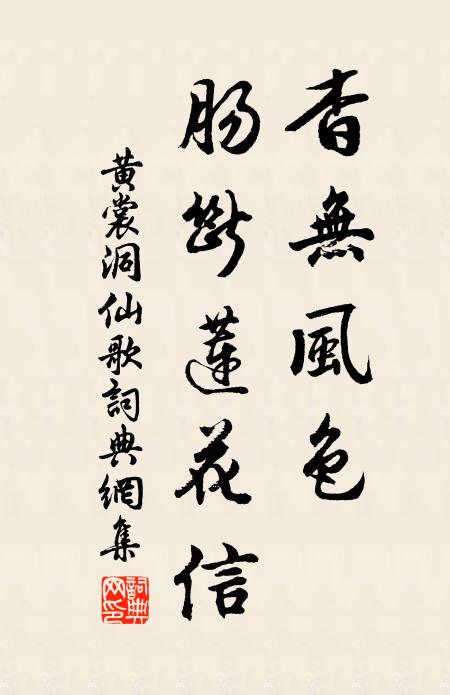 杳無風色
腸斷蓮花信
黃裳洞仙歌詞典網集
詞典
网印